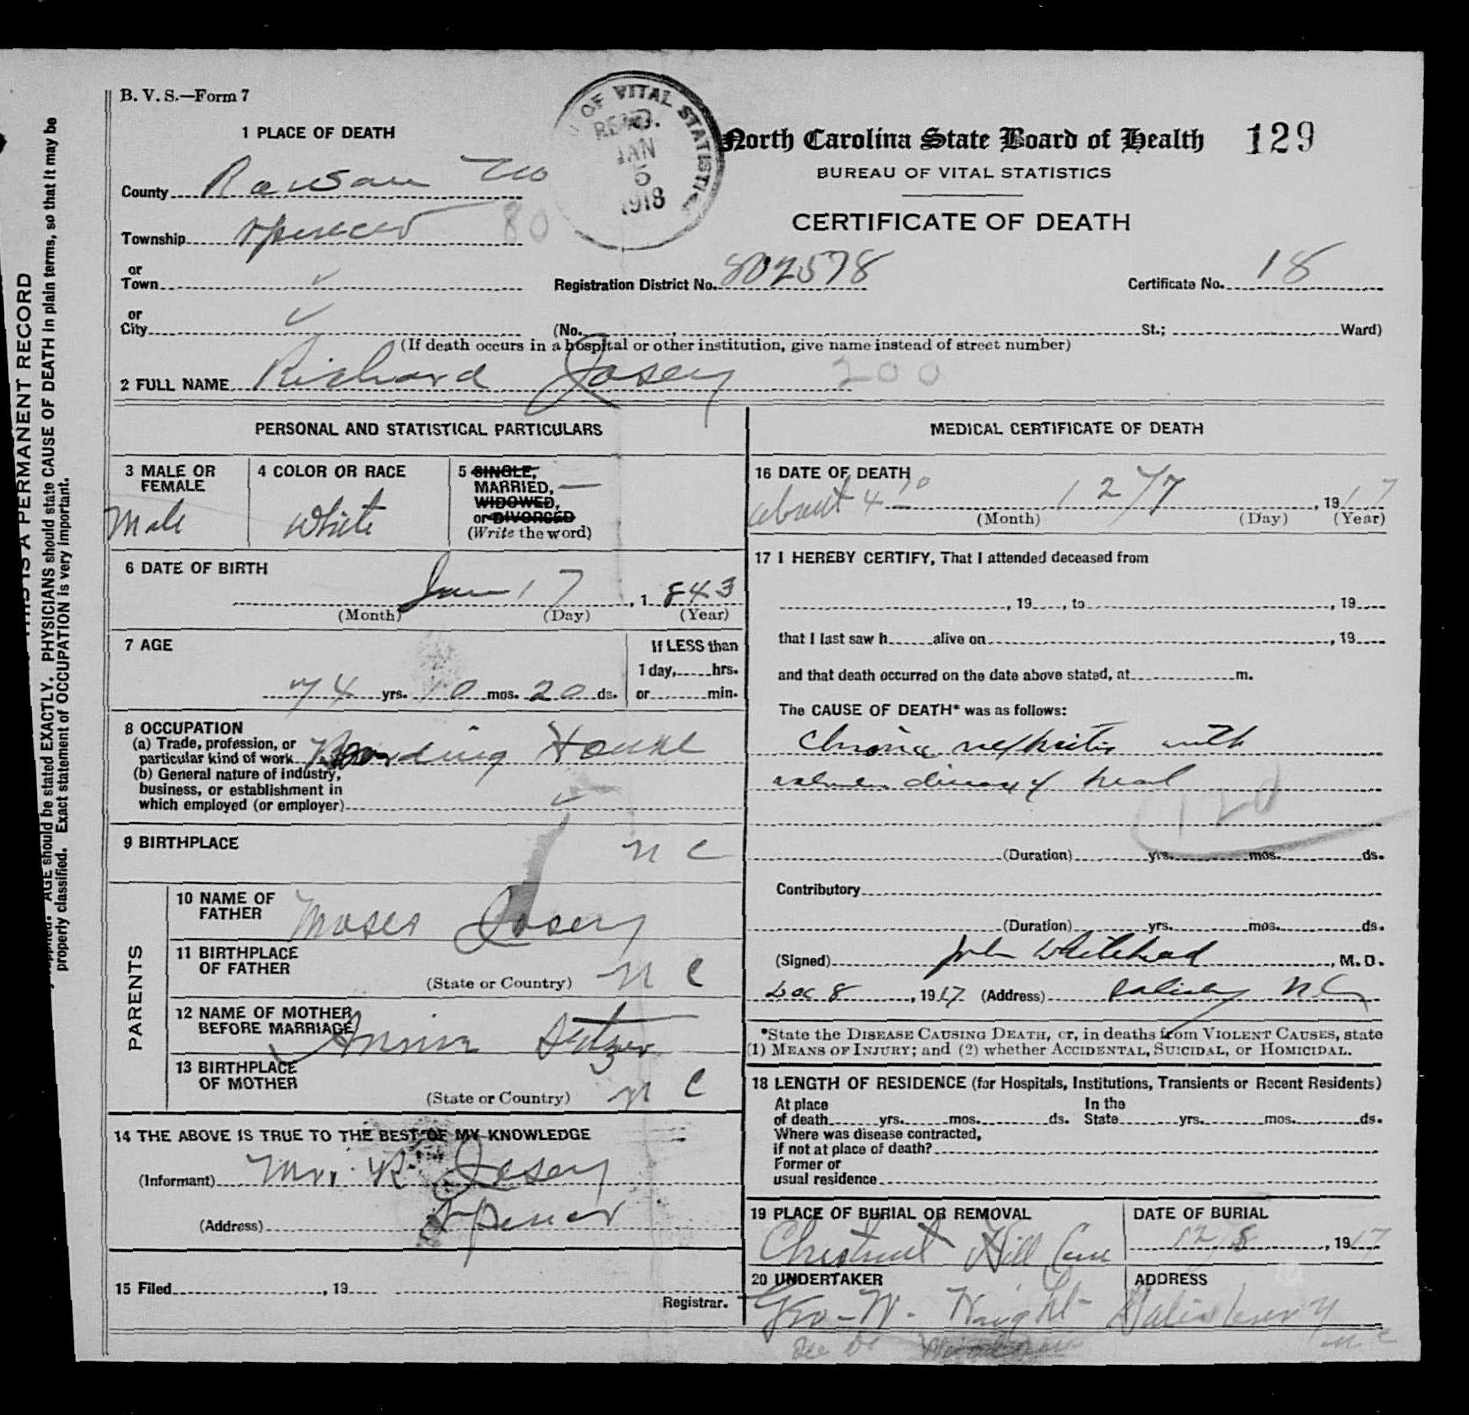 B. V. S.—Form 7
1 PLACE OF DEATH
OF VITAL STATISTI
REC'D.
JAN
5
1918
North Carolina State Board of Health 129
BUREAU OF VITAL STATISTICS
CERTIFICATE OF DEATH
County Rowan
Township Spencer 80
or
Town ✓
Registration District No. 802578
Certificate No. 18
or
City ✓
(No. , St.; Ward)
(If death occurs in a hospital or other institution, give name instead of street number)
2 FULL NAME Richard Josey 200
PERSONAL AND STATISTICAL PARTICULARS
3 MALE OR FEMALE
Male
4 COLOR OR RACE
White
5 SINGLE,
MARRIED, —
WIDOWED,
or DIVORCED
(Write the word)
6 DATE OF BIRTH
Jan 17, 1843
(Month) (Day) (Year)
7 AGE
If LESS than
1 day, hrs.
or min.
74 yrs. 10 mos. 20 ds.
8 OCCUPATION
(a) Trade, profession, or
particular kind of work Boarding House
(b) General nature of industry,
business, or establishment in
which employed (or employer) ✓
9 BIRTHPLACE N C
PARENTS
10 NAME OF
FATHER Moses Josey
11 BIRTHPLACE
OF FATHER
(State or Country) N C
12 NAME OF MOTHER
BEFORE MARRIAGE
13 BIRTHPLACE
OF MOTHER
(State or Country) N C
14 THE ABOVE IS TRUE TO THE BEST OF MY KNOWLEDGE
(Informant) Mrs. R. Josey
(Address) Spencer
15 Filed , 19
Registrar.
MEDICAL CERTIFICATE OF DEATH
16 DATE OF DEATH
about 4 12/7, 1917
(Month) (Day) (Year)
17 I HEREBY CERTIFY, That I attended deceased from
, 19 , to , 19
that I last saw h alive on , 19
and that death occurred on the date above stated, at m.
The CAUSE OF DEATH* was as follows:
Chronic nephritis with
disease of heart
120
(Duration) yrs. mos. ds.
Contributory
(Duration) yrs. mos. ds.
(Signed) John Whitehead, M. D.
Dec 8, 1917 (Address) Salisbury N C
*State the DISEASE CAUSING DEATH, or, in deaths from VIOLENT CAUSES, state
(1) MEANS OF INJURY; and (2) whether ACCIDENTAL, SUICIDAL, or HOMICIDAL.
18 LENGTH OF RESIDENCE (for Hospitals, Institutions, Transients or Recent Residents)
At place
of death yrs. mos. ds.
In the
State yrs. mos. ds.
Where was disease contracted,
if not at place of death?
Former or
usual residence
19 PLACE OF BURIAL OR REMOVAL
Chestnut Hill Cem
DATE OF BURIAL
12/8, 1917
20 UNDERTAKER
Geo-W. Wright
ADDRESS
Salisbury
N C
THIS IS A PERMANENT RECORD
AGE should be stated EXACTLY. PHYSICIANS should state CAUSE OF DEATH in plain terms, so that it may be
properly classified. Exact statement of OCCUPATION is very important.